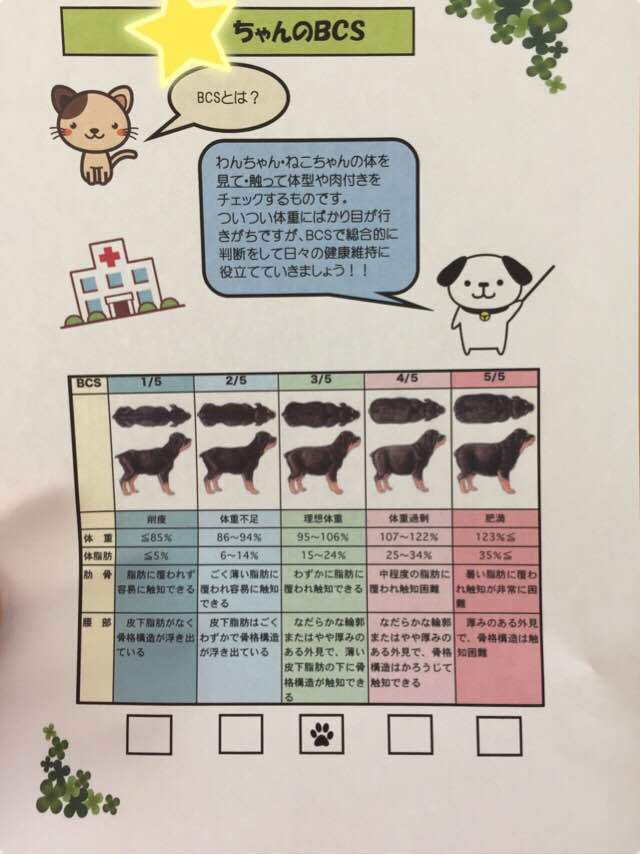 ちゃんのBCS
BCSとは？
わんちゃん・ねこちゃんの体を
見て・触って体型や肉付きを
チェックするものです。
ついつい体重にばかり目が行
きがちですが、BCSで総合的に
判断をして日々の健康維持に
役立てていきましょう！！
BCS 1/5 2/5 3/5 4/5 5/5
削痩 体重不足 理想体重 体重過剰 肥満
体 重 ≦85% 86~94% 95~106% 107~122% 123%≦
体脂肪 ≦5% 6~14% 15~24% 25~34% 35%≦
肋 骨
脂肪に覆われず
容易に触知できる
ごく薄い脂肪に
覆われ容易に触知
できる
わずかに脂肪に
覆われ触知できる
中程度の脂肪に
覆われ触知困難
暑い脂肪に覆わ
れ触知が非常に困
難
腰 部
皮下脂肪がなく
骨格構造が浮き出
ている
皮下脂肪はごく
わずかで骨格構造
が浮き出ている
なだらかな輪郭
またはやや厚みの
ある外見で、薄い
皮下脂肪の下に骨
格構造が触知でき
る
なだらかな輪郭
またはやや厚みの
ある外見で、骨格
構造はかろうじて
触知できる
厚みのある外見
で、骨格構造は触
知困難